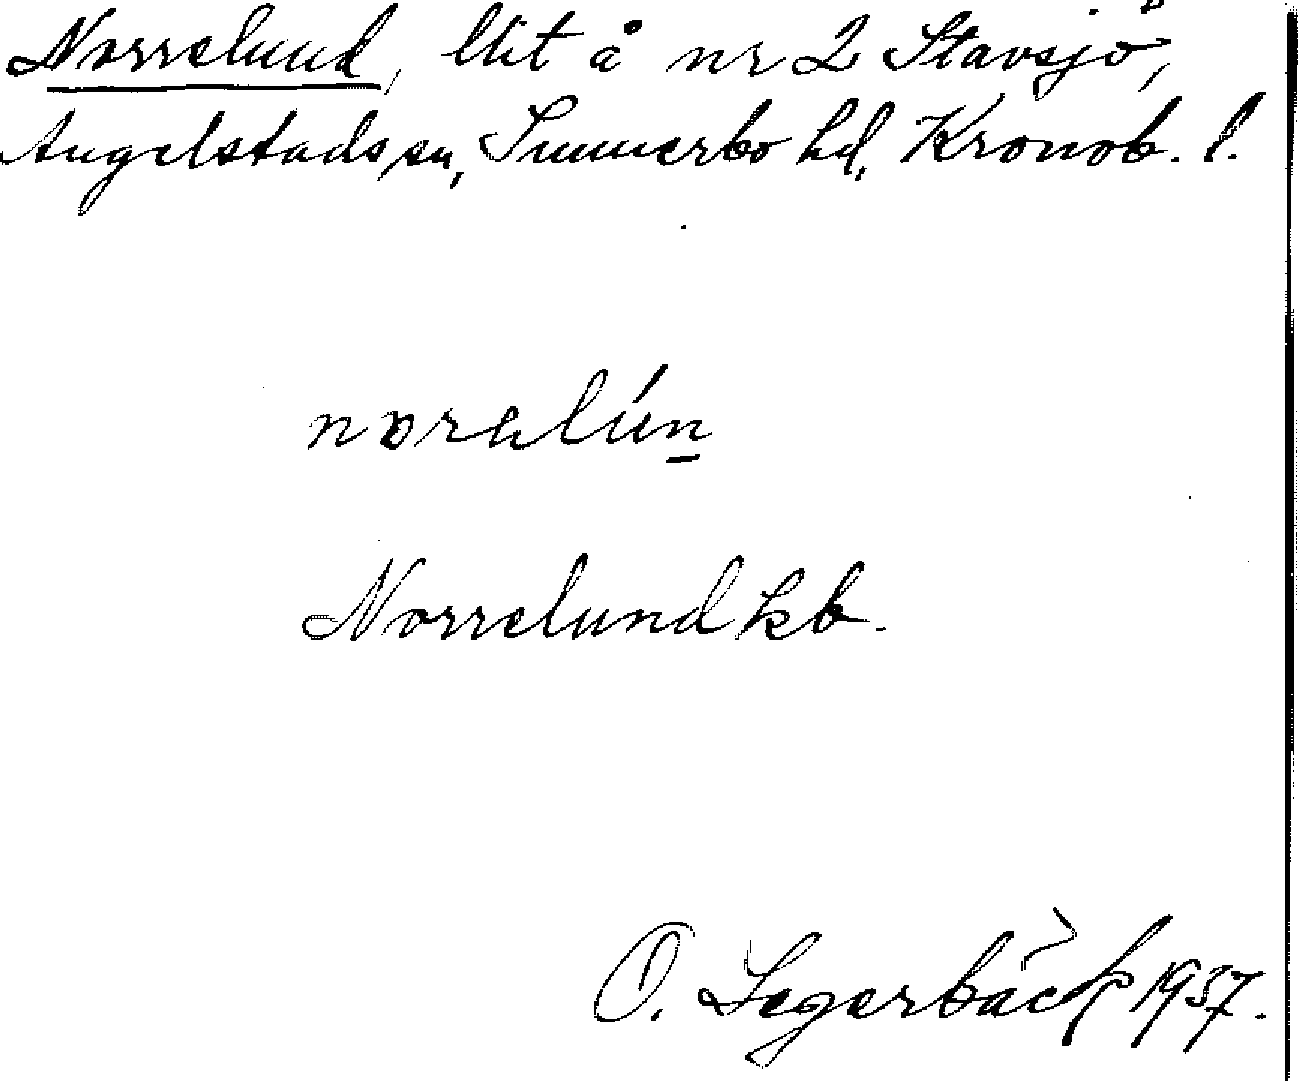 Norrelund, lht å nr 2 Stavsjö,
Angelstads sn, Sunnerbo hd, Kronob. l.
noralún
Norrelund kb.
O. Segerbäck 1937.